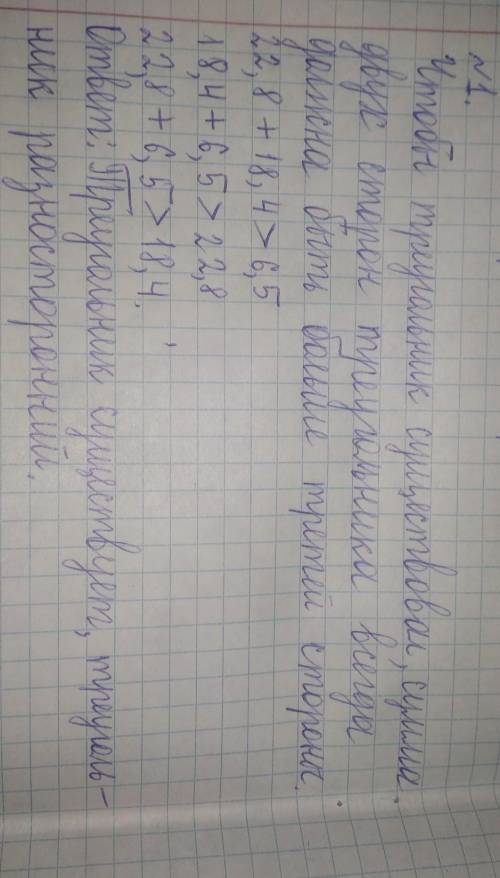 №1.
Чтобы треугольник существовал, сумма
двух сторон треугольника всегда
должна быть больше третей стороны.
22,8 + 18,4 > 6,5
18,4 + 6,5 > 22,8
22,8 + 6,5 > 18,4.
Ответ: Треугольник существует, треуголь-
ник разносторонний.